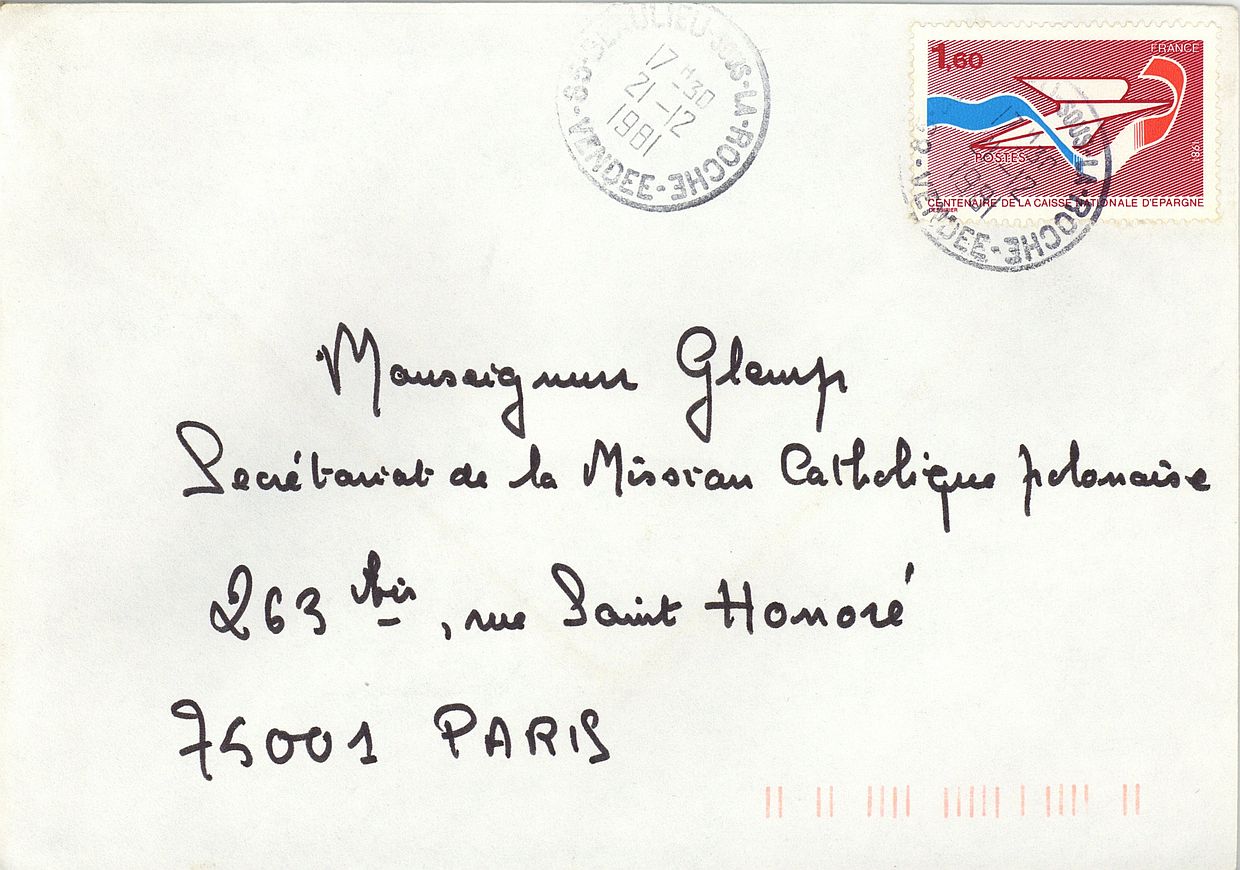 85-BEAULIEU-SOUS-LA-ROCHE-VENDEE-
17H30
21-12
1981
1,60
FRANCE
POSTES
1981
CENTENAIRE DE LA CAISSE NATIONALE D'EPARGNE
SOUS-LA-ROCHE
VENDEE-
-12
1981
Monseigneur Glemp
Secrétariat de la Mission Catholique polonaise
263 bis, rue Saint Honoré
75001 PARIS